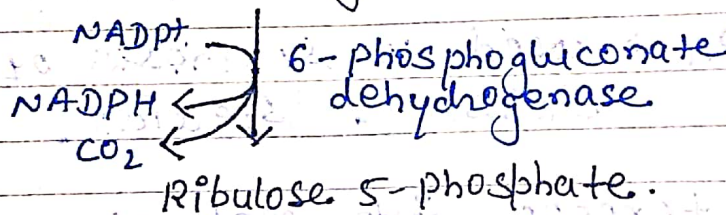 NADP+
6-phosphogluconate
dehydrogenase
NADPH
CO2
Ribulose 5-phosphate.